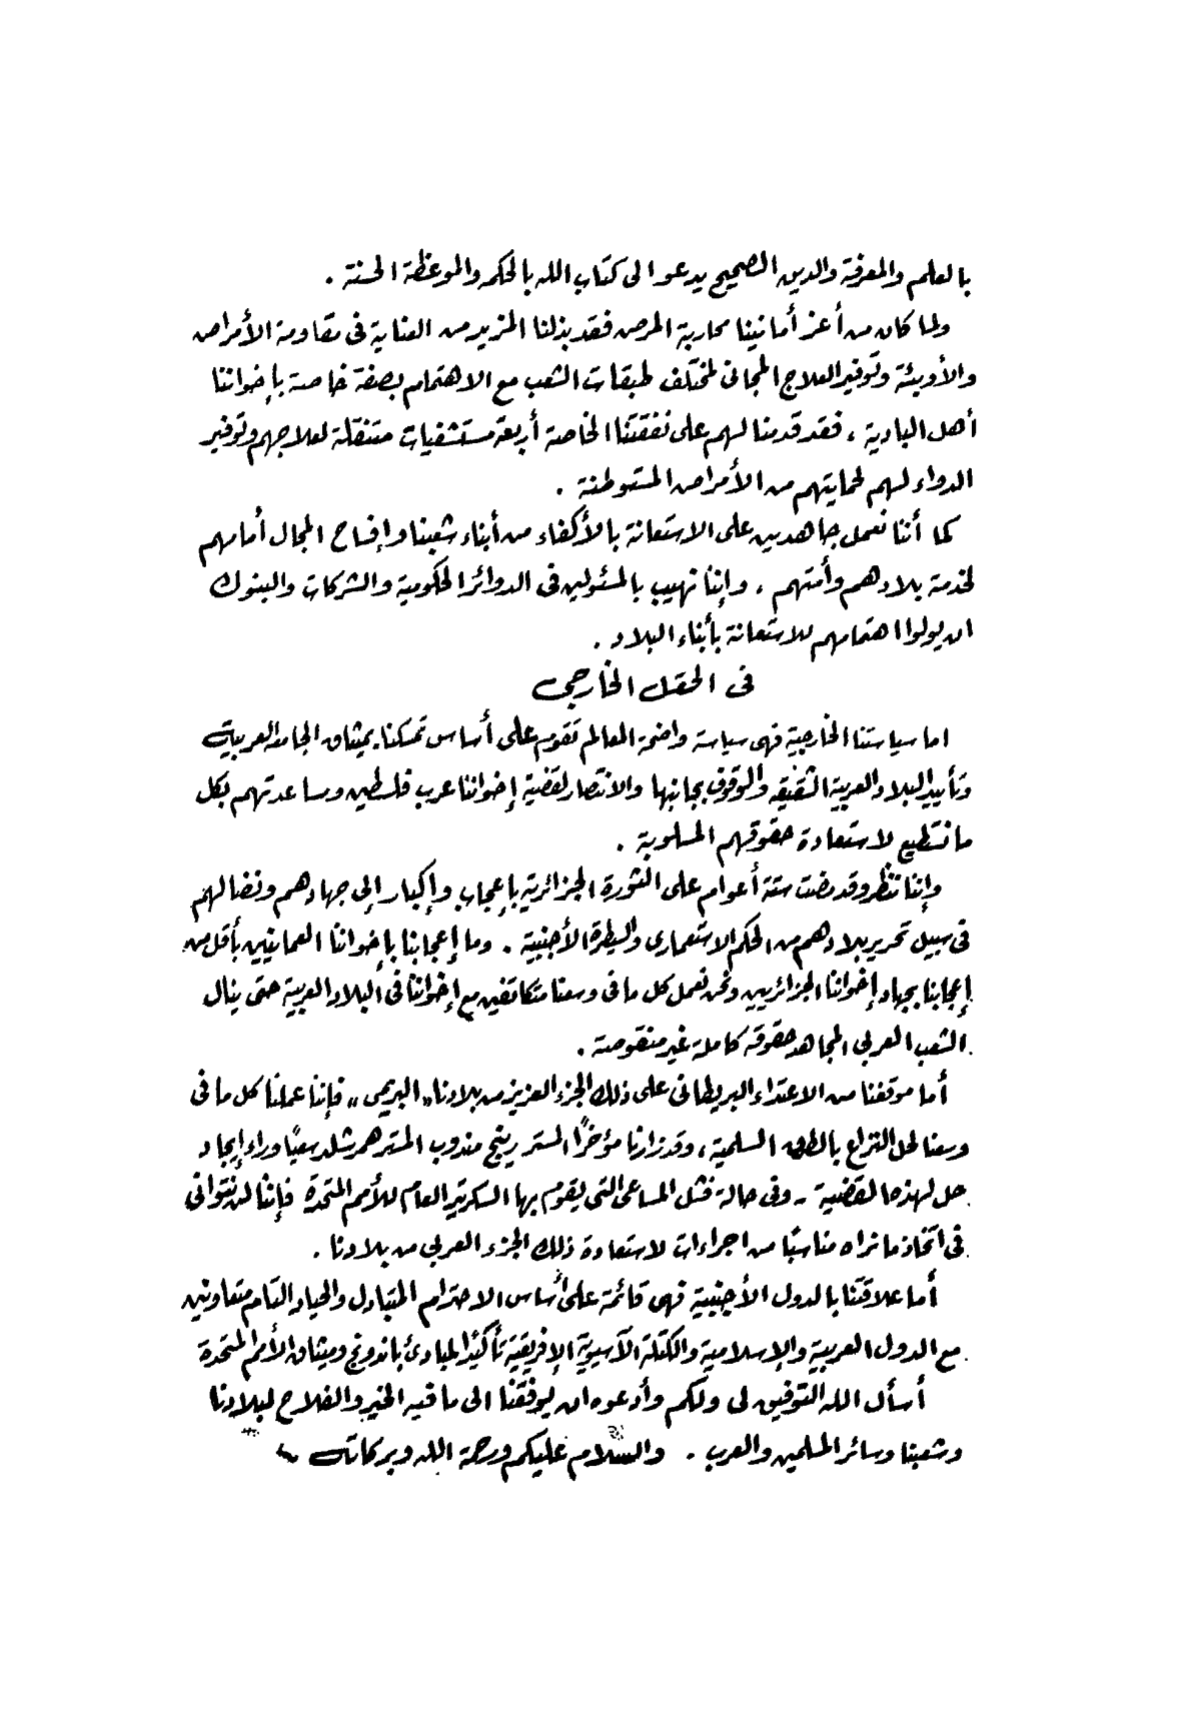 بالعلم والمعرفة والدين الصحيح يدعو الى كتاب الله بالحكمه والموعظة الحسنة .
ولما كان من أعز أمانينا محاربة المرض فقد بذلنا المزيد من العناية فى مقاومة الأمراض
والأوبئة وتوفير العلاج المجانى لمختلف طبقات الشعب مع الاهتمام بصفة خاصة بإخواننا
أهل البادية ، فقد قدمنا لهم على نفقتنا الخاصة أربعة مستشفيات متنقلة لعلاجهم وتوفير
الدواء لهم لحمايتهم من الأمراض المستوطنة .
كما أننا نعمل جاهدين على الاستعانة بالأكفاء من أبناء شعبنا وإفساح المجال أمامهم
لخدمة بلادهم وأمتهم ، وإننا نهيب بالمسئولين فى الدوائر الحكومية والشركات والبنوك
ان يولوا اهتمامهم للاستعانة بأبناء البلاد .
فى الحقل الخارجى
اما سياستنا الخارجية فهى سياسة واضحة المعالم تقوم على أساس تمسكنا بميثاق الجامعة العربية
وتأييد البلاد العربية الشقيقه والوقوف بجانبها والانتصار لقضية إخواننا عرب فلسطين ومساعدتهم بكل
ما نستطيع لاستعادة حقوقهم المسلوبة .
وإننا ننظر وقد مضت ستة أعوام على الثورة الجزائرية بإعجاب وإكبار إلى جهادهم ونضالهم
فى سبيل تحرير بلادهم من الحكم الاستعمارى والسيطرة الأجنبية . وما إعجابنا بإخواننا العمانيين بأقل من
إعجابنا بجهاد إخواننا الجزائريين ونحن نعمل كل ما فى وسعنا متكاتفين مع إخواننا فى البلاد العربية حتى ينال
الشعب العربى المجاهد حقوقه كاملة غير منقوصة .
أما موقفنا من الاعتداء البريطانى على ذلك الجزء العزيز من بلادنا « البريمى » فإننا عملنا كل ما فى
وسعنا لحل النزاع بالطرق السلمية ، وقد زارنا مؤخرًا المستر ريبنج مندوب المستر همرشلد سعيًا وراء إيجاد
حل لهذه القضية - وفى حالة فشل المساعى التى يقوم بها السكرتير العام للأمم المتحدة فإننا لن نتوانى
فى اتخاذ ما نراه مناسبًا من اجراءات لاستعادة ذلك الجزء العربى من بلادنا .
أما علاقتنا بالدول الأجنبية فهى قائمة على أساس الاحترام المتبادل والحياد التام متعاونين
مع الدول العربية والإسلامية والكتلة الآسيوية الإفريقية تأكيدًا لمبادئ باندونج وميثاق الأمم المتحدة
أسأل الله التوفيق لى ولكم وأدعوه ان يوفقنا الى ما فيه الخير والفلاح لبلادنا
وشعبنا وسائر المسلمين والعرب . والسلام عليكم ورحمة الله وبركاته